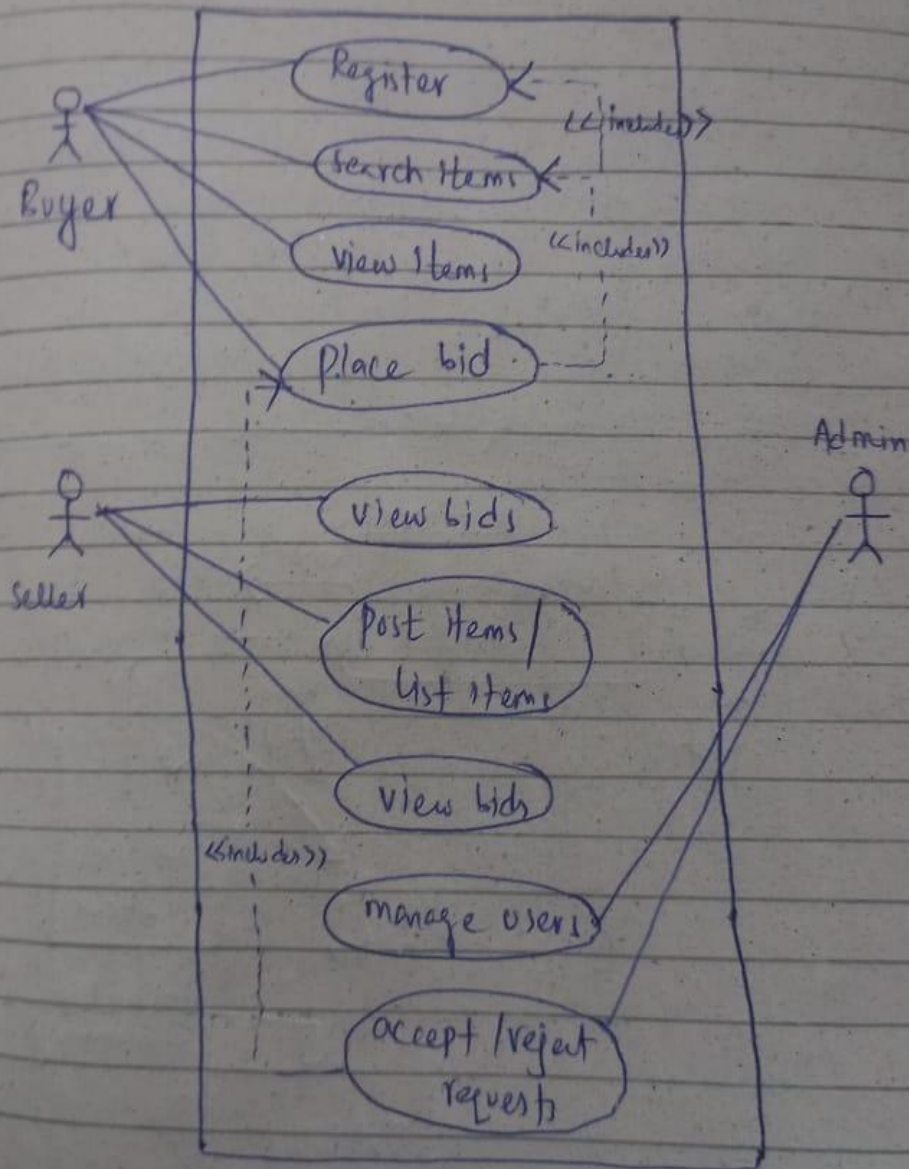 Register
<<includes>>
Search items
Buyer
<<includes>>
view Items
place bid
Admin
view bids
Seller
post items /
List items
view bids
<<includes>>
manage users
accept / reject
requests